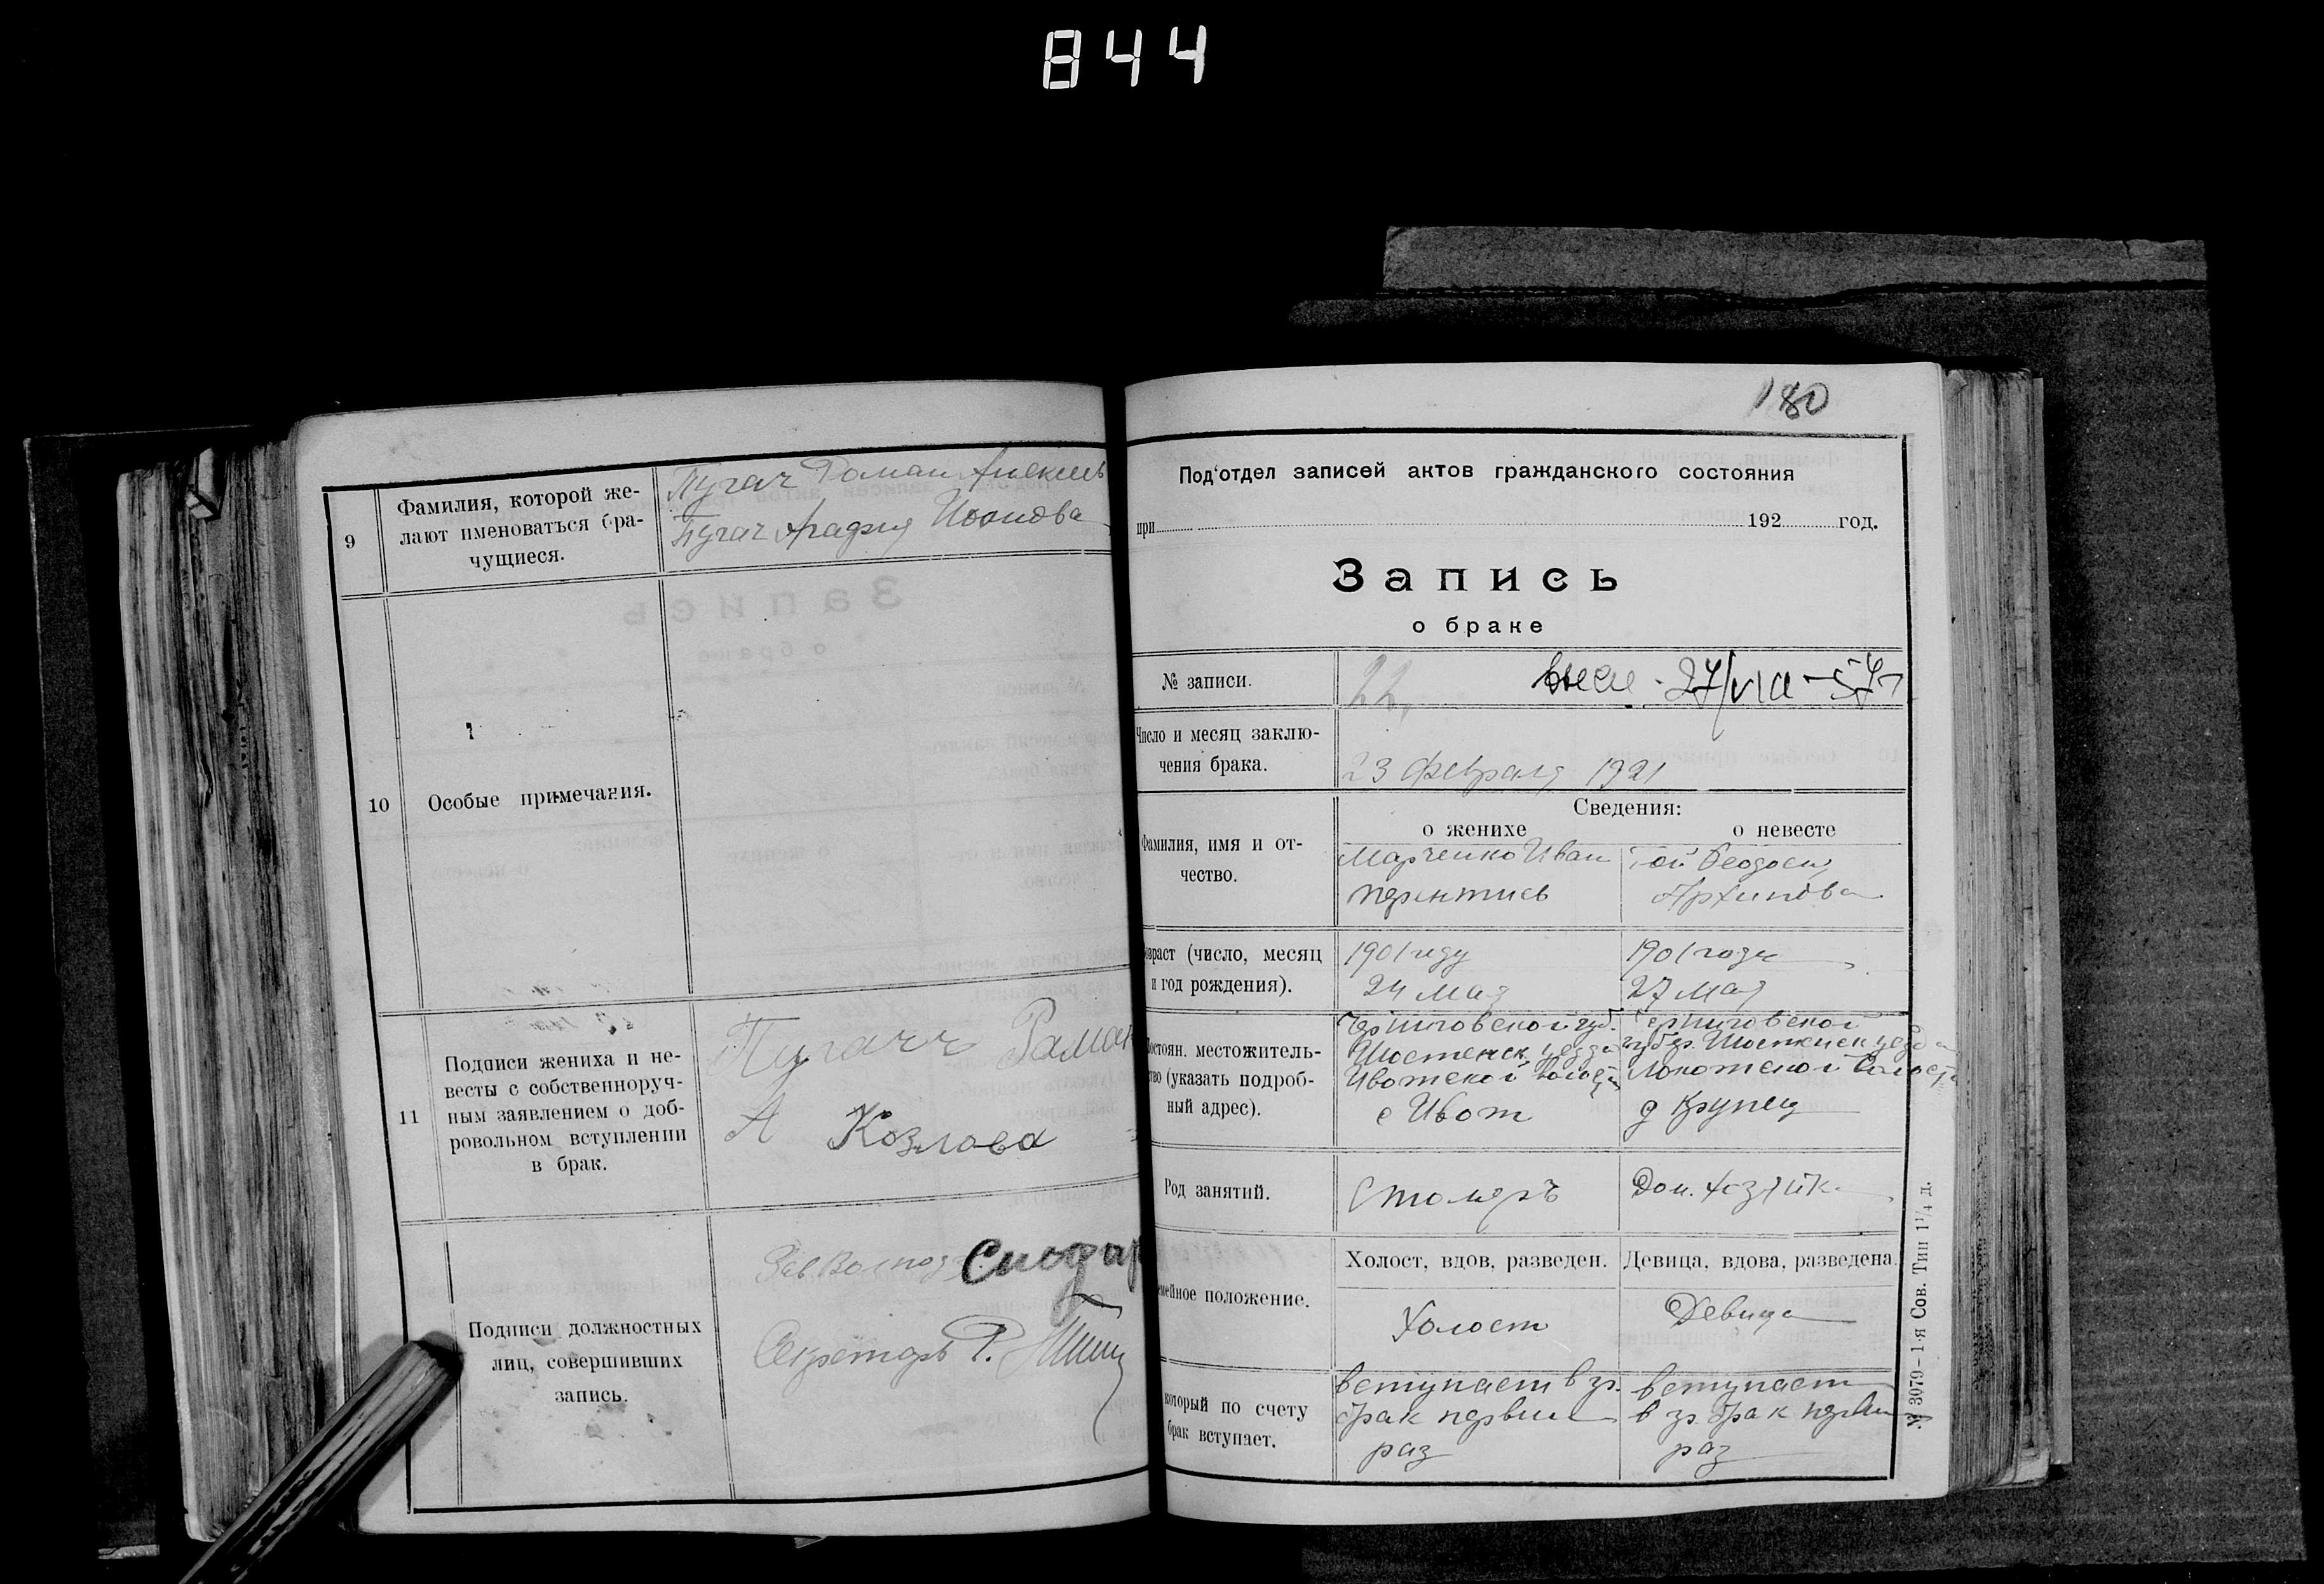 844
9
Фамилия, которой же-
лают именоваться бра-
чущиеся.
Пугач Роман Алексеев
Пугач Агафия Иванова
10
Особые примечания.
11
Подписи жениха и не-
весты с собственноруч-
ным заявлением о доб-
ровольном вступлении
в брак.
Пугачь Раман
А Козлова
Подписи должностных
лиц, совершивших
запись.
Зав.
Секретарь Р.
180
Под'отдел записей актов гражданского состояния
при 192 год.
Запись
о браке
№ записи.
22
27/VIII-57г
Число и месяц заклю-
чения брака.
23 февраля 1921
Сведения:
о женихе
о невесте
Фамилия, имя и от-
чество.
Марченко Иван
Гой Феодосия
Архипова
возраст (число, месяц
и год рождения).
1901 году
24 Мая
1901 года
27 Мая
Постоян. местожитель-
ство (указать подроб-
ный адрес).
Черниговской губ.
Шостенск. уезда
Ивотской волости
с Ивот
Черниговской
губер. Шостенск уезда
Локотской волости
д Крупец
Род занятий.
Столяръ
Дом. хозяйка
семейное положение.
Холост, вдов, разведен.
Девица, вдова, разведена.
Холост
Девица
который по счету
брак вступает.
вступает в гр.
брак первый
раз
вступает
в гр. брак первый
раз
№ 3079—1-я Сов. Тип 1¼ д.